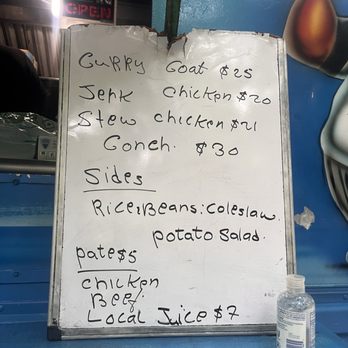 OPEN
Curry Goat $25
Jerk Chicken $20
Stew chicken $21
Conch. $30
Sides
Rice&Beans: coleslaw.
potato salad.
pate$5
chicken
Beef
Local Juice $7